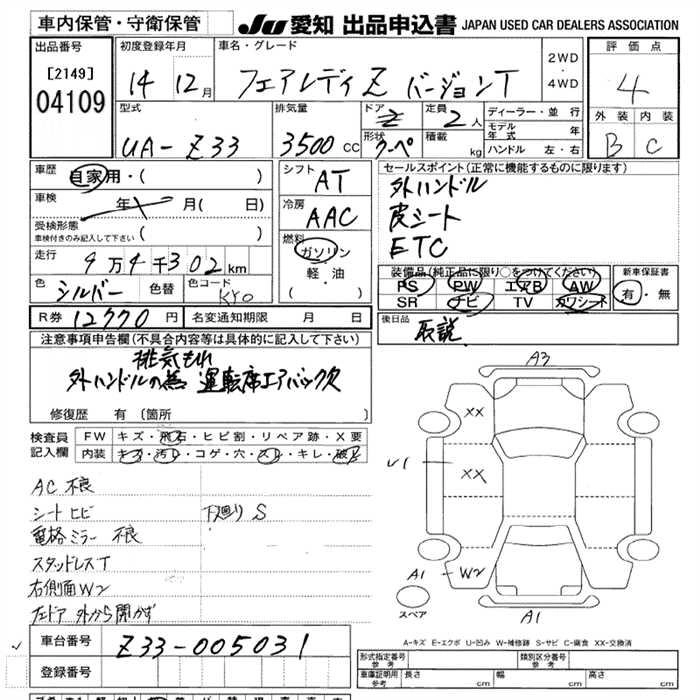 車内保管・守衛保管
JU 愛知 出品申込書 JAPAN USED CAR DEALERS ASSOCIATION
出品番号
[2149]
04109
初度登録年月
14 12月
車名・グレード
フェアレディZ バージョンT
2WD
・
4WD
評価点
4
外装 内装
B C
型式
UA-Z33
排気量
3500cc
ドア
2
形状
クーペ
定員
2人
積載
kg
ディーラー・並行
モデル年式 年
ハンドル 左・右
車歴
自家用・( )
車検
年 月( 日)
受検形態
車検付きのみ記入して下さい( )
走行
9万4千302km
色
シルバー
色替
色コード
KY0
シフト
AT
冷房
AAC
燃料
ガソリン
軽・油
( )
セールスポイント(正常に機能するものに限ります)
外ハンドル
皮シート
ETC
装備品(純正品に限り○をつけてください)
PS PW エアB AW
SR ナビ TV カワシート
新車保証書
有・無
R券 12770円
名変通知期限 月 日
後日品
取説
注意事項申告欄(不具合内容等は具体的に記入して下さい)
排気もれ
外ハンドルの為 運転席エアバック欠
修復歴 有 〔箇所
検査員記入欄
FW キズ・飛石・ヒビ割・リペア跡・X要
内装 キズ・汚レ・コゲ・穴・スレ・キレ・破レ
AC不良
シートヒビ
下廻りS
電格ミラー不良
スタッドレスT
右側面W2
左ドア 外から開かず
A3
XX
XX
U1
A1
W2
A1
スペア
車台番号
Z33-005031
登録番号
A-キズ E-エクボ U-凹み W-補修跡 S-サビ C-腐食 XX-交換済
形式指定番号
参考
類別区分番号
参考
車庫証明用
参考
長さ cm
幅 cm
高さ cm